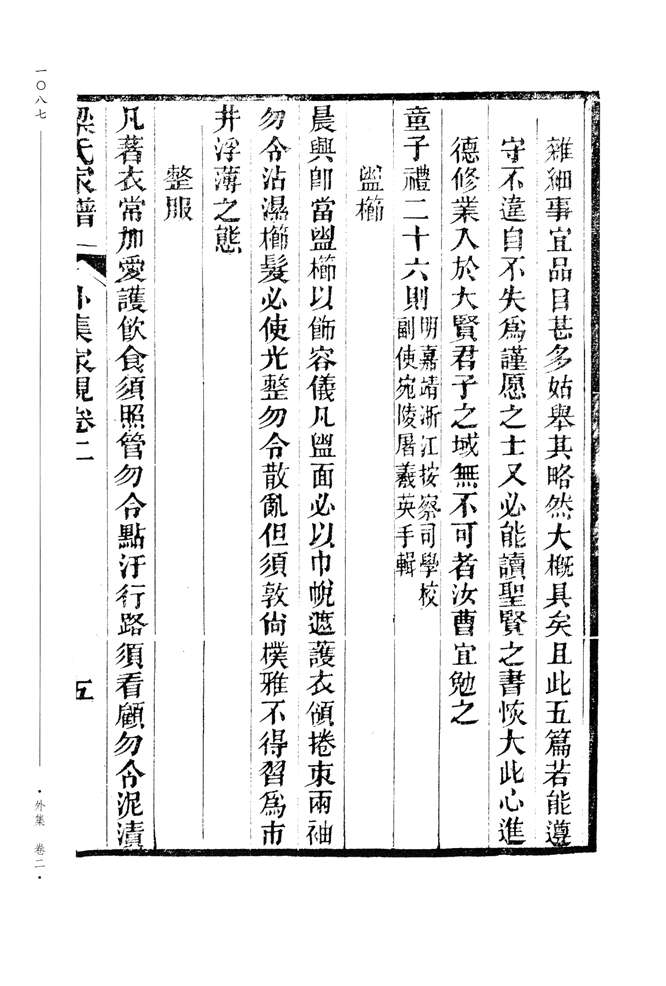 雜細事宜品目甚多姑舉其略然大槪具矣且此五篇若能遵
守不違自不失爲謹愿之士又必能讀聖賢之書恢大此心進
德修業入於大賢君子之域無不可者汝曹宜勉之
童子禮二十六則明嘉靖浙江按察司學校
副使宛陵屠羲英手輯
盥櫛
晨興卽當盥櫛以飾容儀凡盥面必以巾帨遮護衣領捲束兩袖
勿令沾濕櫛髮必使光整勿令散亂但須敦尙樸雅不得習爲市
井浮薄之態
整服
凡著衣常加愛護飮食須照管勿令點汙行路須看顧勿令泥漬
梁氏家譜
外集家規卷二
五
一〇八七
·外集 卷二·